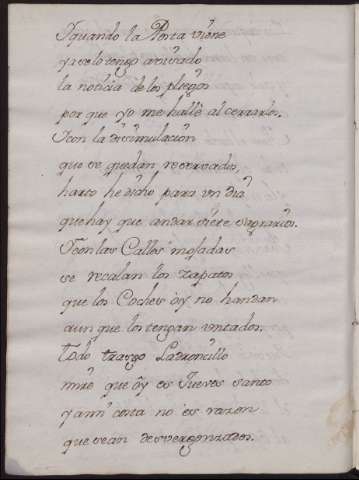 Y quando la Posta viene
ya se lo tengo avisado
la noticia de los pliegos
por que yo me hallè al cerrarlos.
Y con la disimulacion
que se quedan reservados,
harto he dicho para un dia
que hay que andar siete sagrarios.
Y con las Calles mojadas
se recalan los zapatos
que los Coches oy no handan
aun que los tengan untados.
todo traygo Ladroncillo
mire que oy es Jueves santo
y ami costa no es razon
que sean desvergonzados.